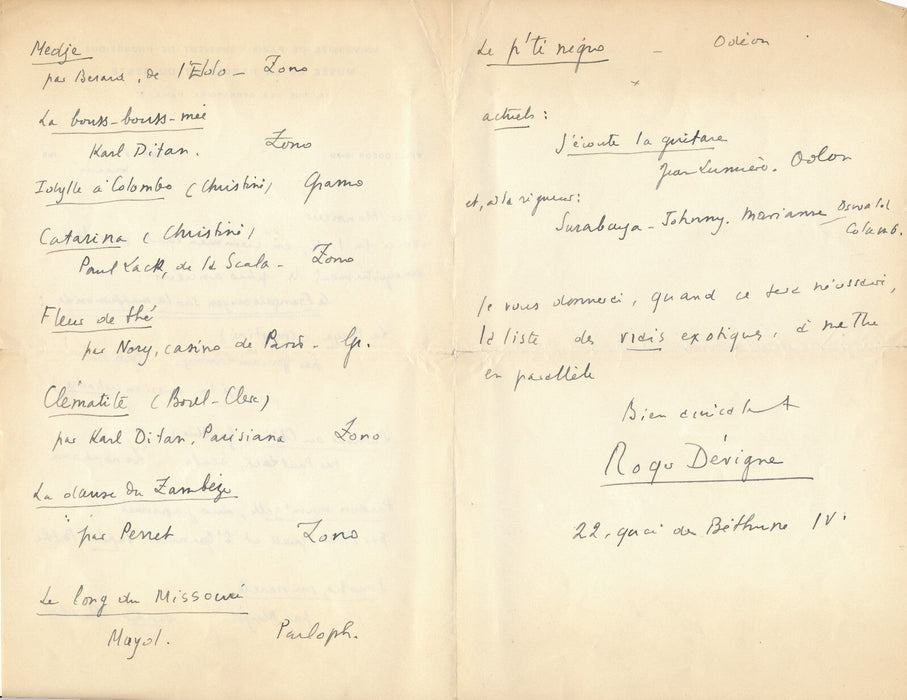 Medje
par Berard, de l'Eldo - Zono
La bouss-bouss-mée
Karl Ditan. Zono
Idylle à Colombo (Christiné) Gramo
Catarina (Christiné)
Paul Lack, de la Scala - Zono
Fleur de thé
par Nory, casino de Paris - Gr.
Clématite (Borel-Clerc)
par Karl Ditan, Parisiana Zono
La danse du Zambèze
par Perret Zono
Le long du Missouri
Mayol. Parloph.
Le p'ti négro - Odéon
x
actuels :
J'écoute la guitare
Jean Lumière. Odéon
et, à la rigueur :
Surabaya-Johnny. Marianne Oswald
Columb.
Je vous donnerai, quand ce sera nécessaire,
la liste des vrais exotiques, à mettre
en parallèle
Bien amicalement
Roger Dévigne
22, quai de Béthune IV.